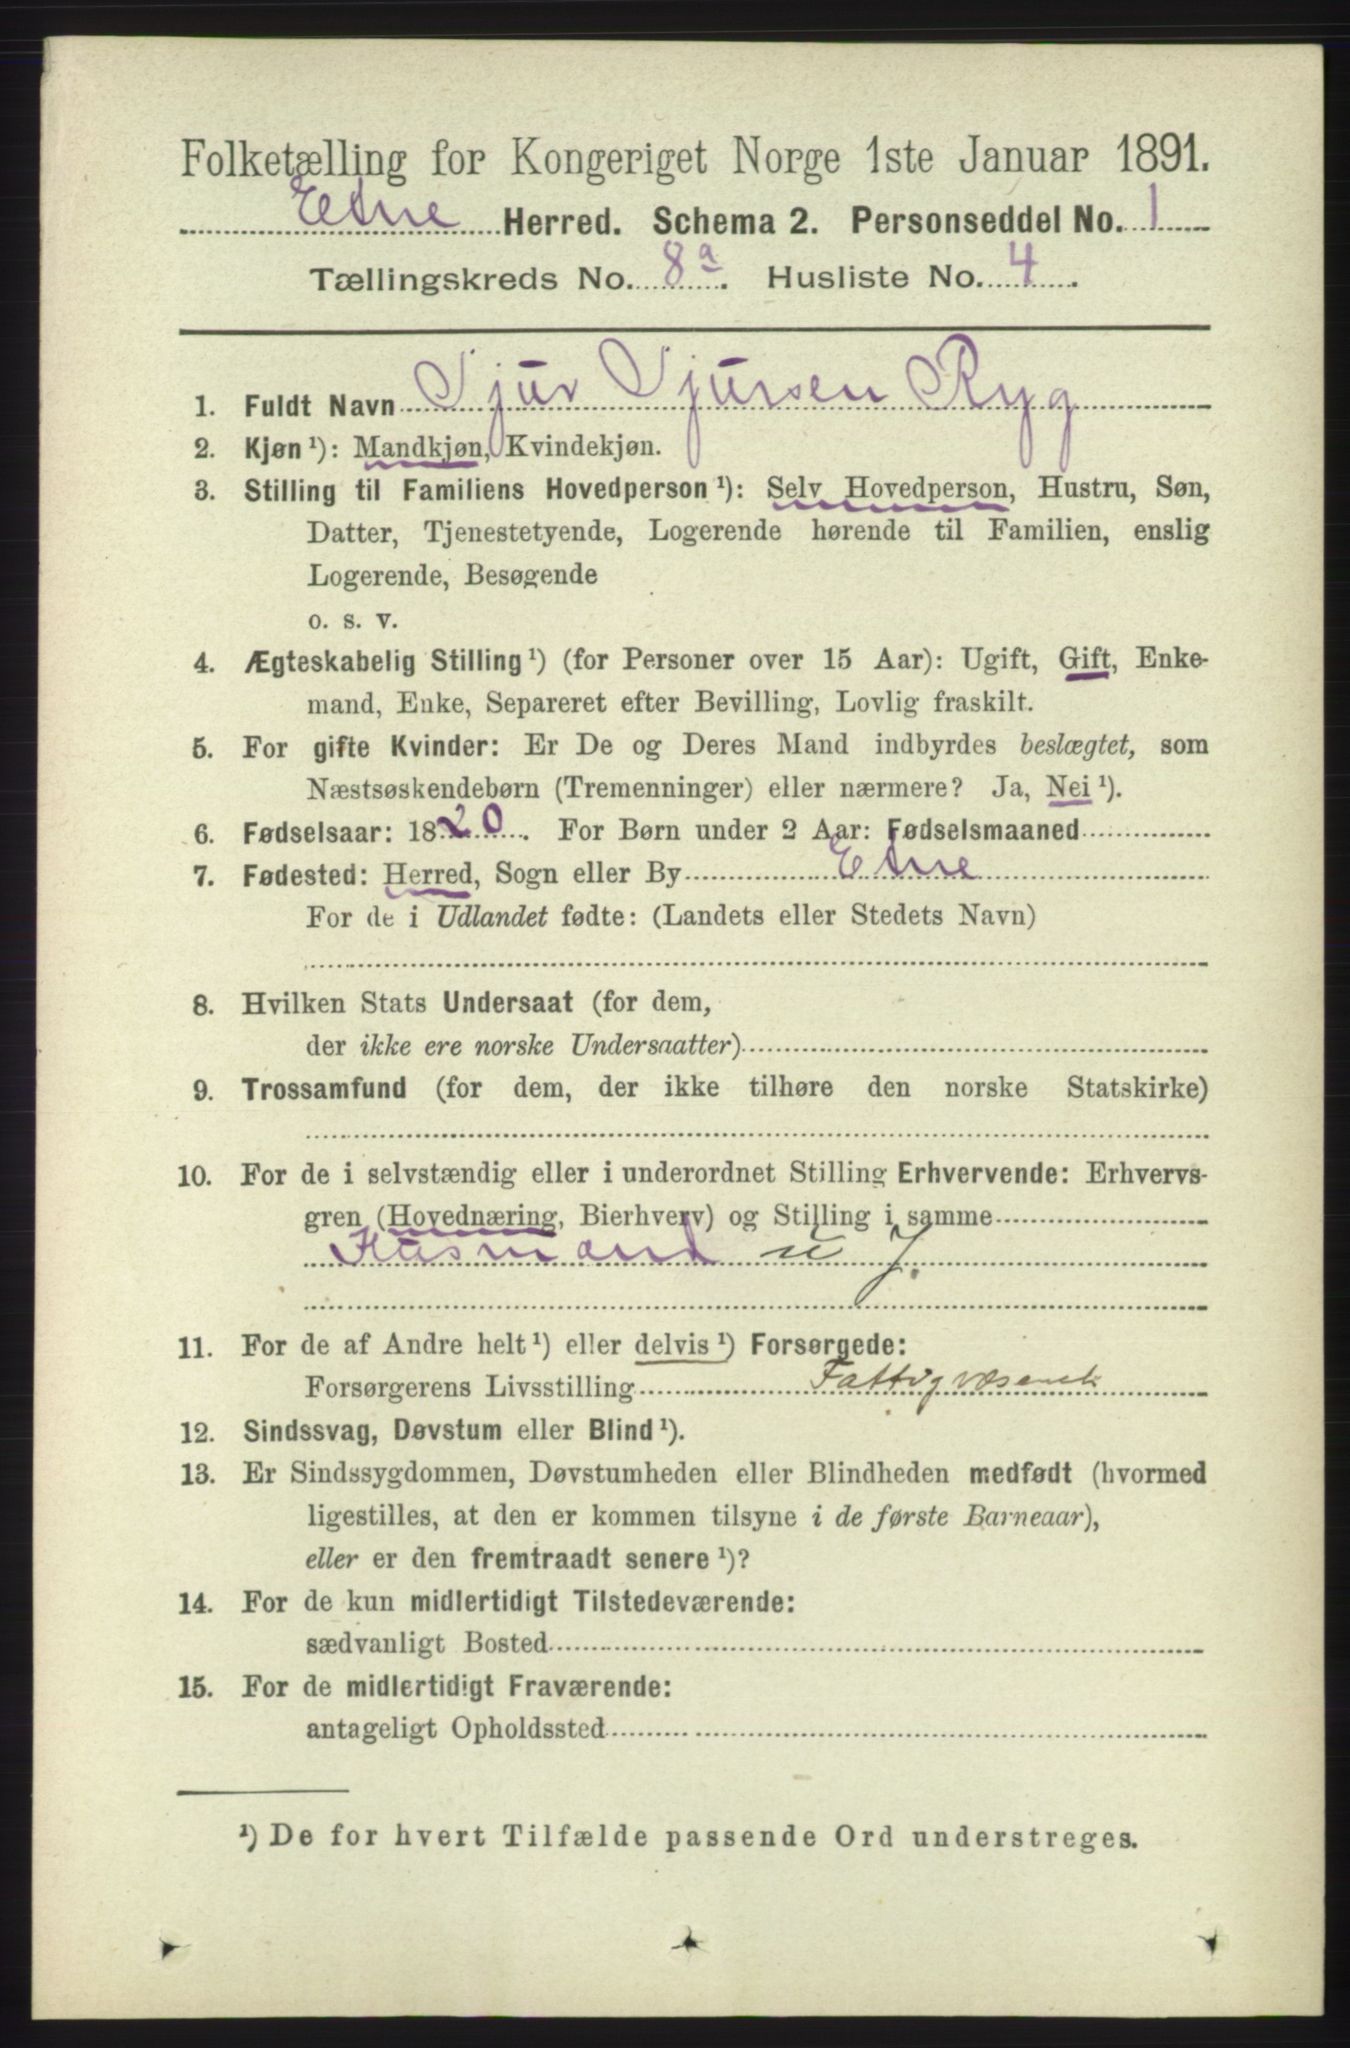 Folketælling for Kongeriget Norge 1ste Januar 1891.
Etne Herred. Schema 2. Personseddel No. 1
Tællingskreds No. 8a. Husliste No. 4.
1. Fuldt Navn Sjur Sjursen Ryg
2. Kjøn ¹): Mandkjøn, Kvindekjøn.
3. Stilling til Familiens Hovedperson ¹): Selv Hovedperson, Hustru, Søn,
Datter, Tjenestetyende, Logerende hørende til Familien, enslig
Logerende, Besøgende
o. s. v.
4. Ægteskabelig Stilling ¹) (for Personer over 15 Aar): Ugift, Gift, Enke-
mand, Enke, Separeret efter Bevilling, Lovlig fraskilt.
5. For gifte Kvinder: Er De og Deres Mand indbyrdes beslægtet, som
Næstsøskendebørn (Tremenninger) eller nærmere? Ja, Nei ¹).
6. Fødselsaar: 1820. For Børn under 2 Aar: Fødselsmaaned
7. Fødested: Herred, Sogn eller By Etne
For de i Udlandet fødte: (Landets eller Stedets Navn)
8. Hvilken Stats Undersaat (for dem,
der ikke ere norske Undersaatter)
9. Trossamfund (for dem, der ikke tilhøre den norske Statskirke)
10. For de i selvstændig eller i underordnet Stilling Erhvervende: Erhvervs-
gren (Hovednæring, Bierhverv) og Stilling i samme
Husmand u J.
11. For de af Andre helt ¹) eller delvis ¹) Forsørgede:
Forsørgerens Livsstilling Fattigvæsenet
12. Sindssvag, Døvstum eller Blind ¹).
13. Er Sindssygdommen, Døvstumheden eller Blindheden medfødt (hvormed
ligestilles, at den er kommen tilsyne i de første Barneaar),
eller er den fremtraadt senere ¹)?
14. For de kun midlertidigt Tilstedeværende:
sædvanligt Bosted
15. For de midlertidigt Fraværende:
antageligt Opholdssted
¹) De for hvert Tilfælde passende Ord understreges.